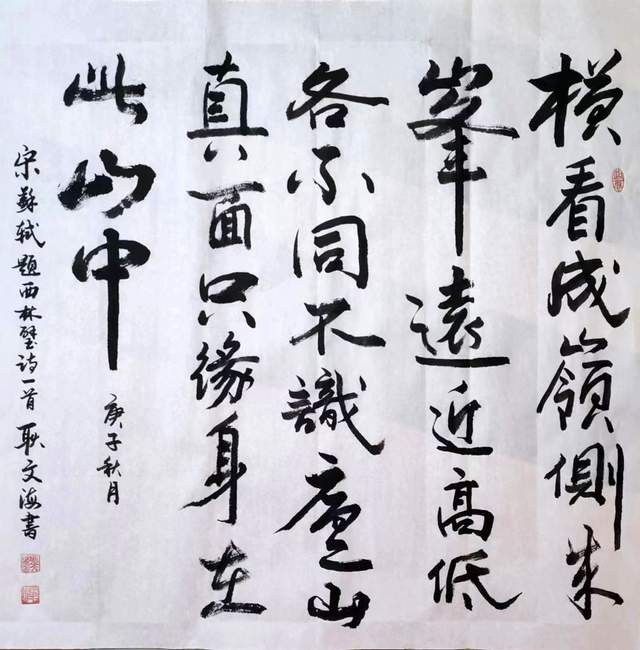 横看成嶺側成
峯遠近高低
各不同不識廬山
真面只緣身在
此山中
庚子秋月
宋蘇軾題西林壁诗一首 耿文海書